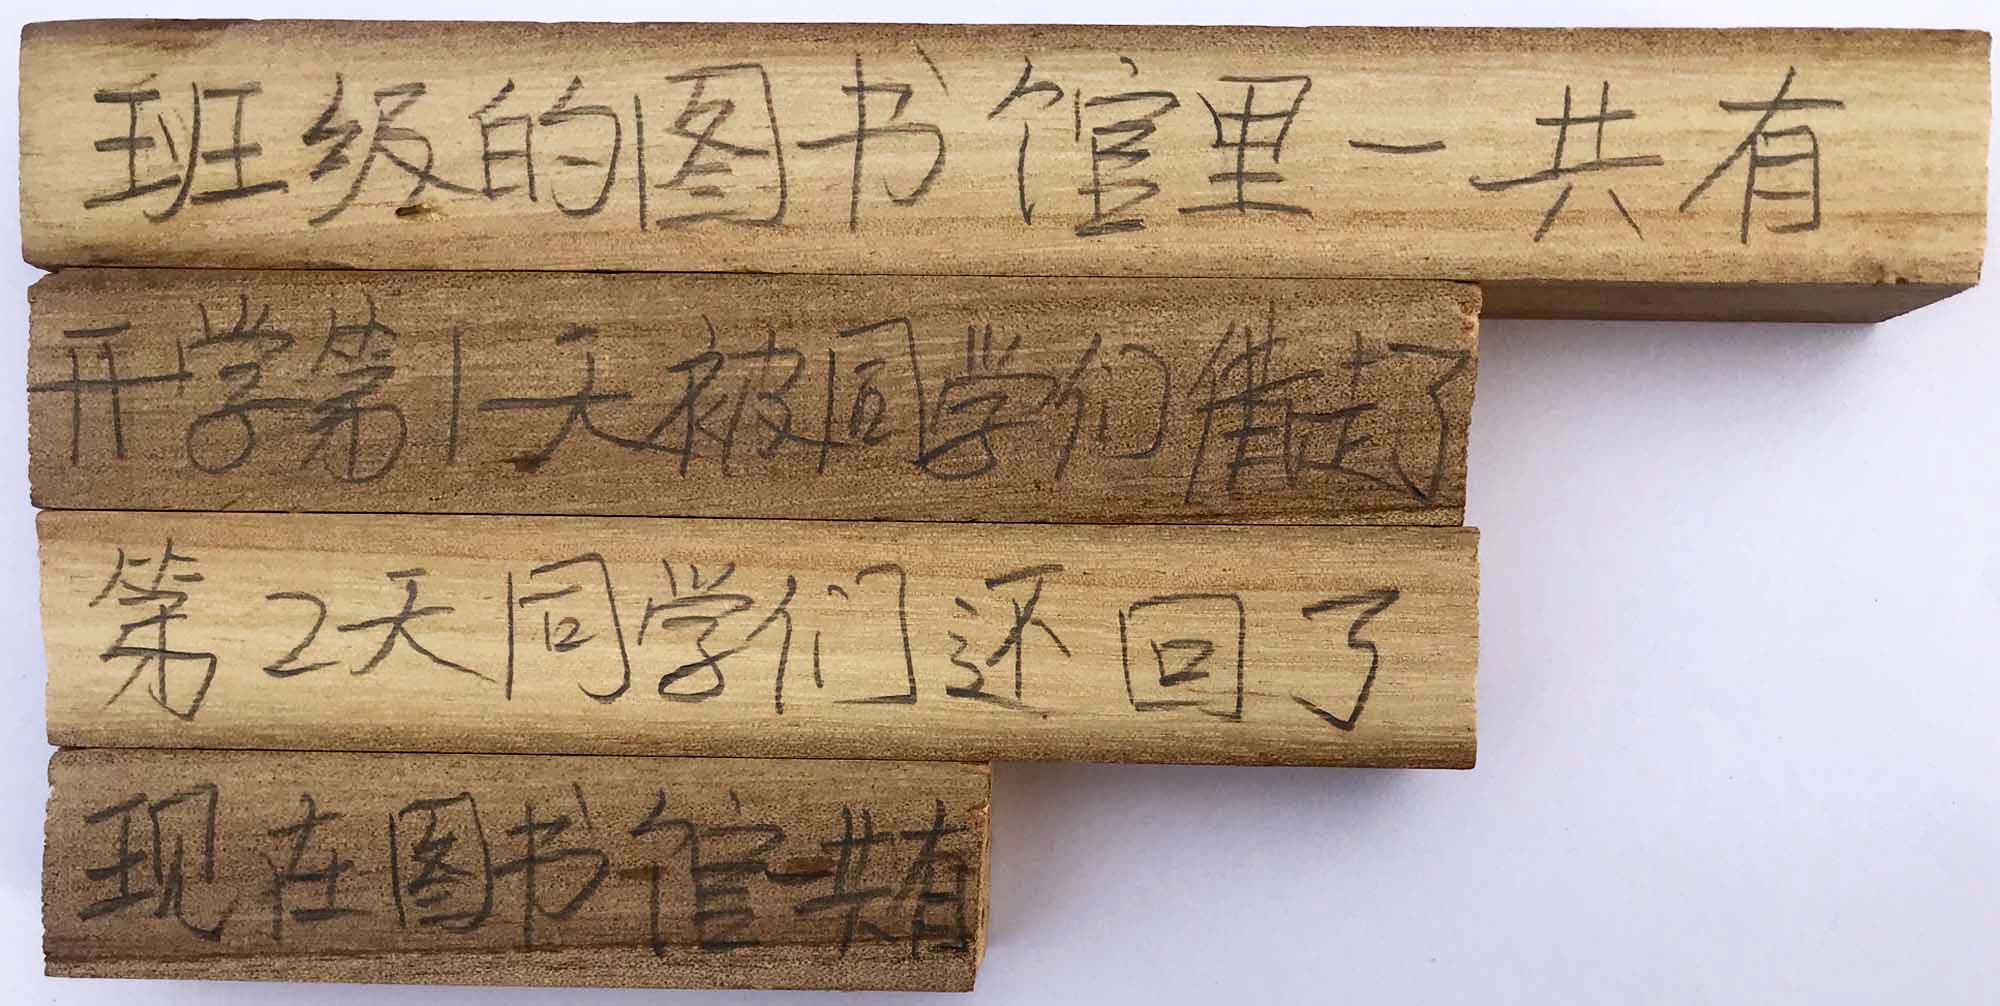 班级的图书馆里一共有
开学第1天被同学们借走了
第2天同学们还回了
现在图书馆一共有